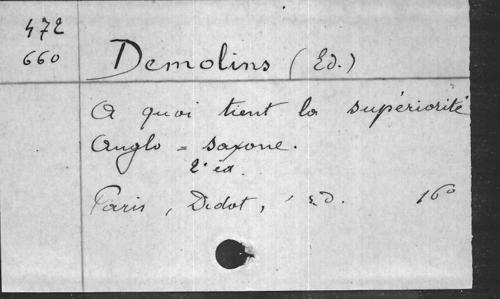 472
660
Demolins (Ed.)
A quoi tient la supériorité
Anglo = saxone.
2e éd.
Paris, Didot, s. d. 16°